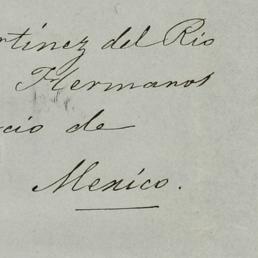 rtinez del Rio
Hermanos
cio de
Mexico.